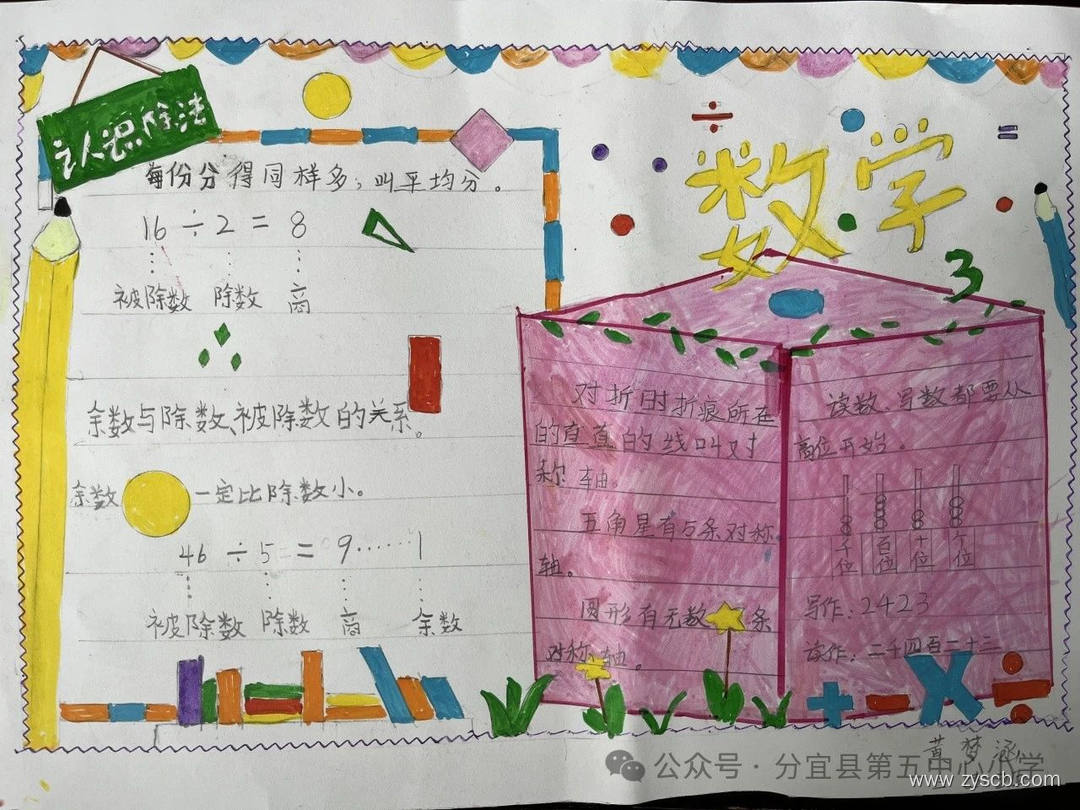 认识除法
每份分得同样多，叫平均分。
16 ÷ 2 = 8
被除数 除数 商
余数与除数、被除数的关系。
余数 一定比除数小。
46 ÷ 5 = 9……1
被除数 除数 商 余数
数学
3
对折时折痕所在
的直直的线叫对
称轴。
五角星有5条对称
轴。
圆形有无数 条
对称轴。
读数、写数都要从
高位开始。
千位 百位 十位 个位
写作：2423
读作：二千四百二十三
+ - × ÷
黄梦
公众号·分宜县第五中心小学
www.zyscb.com